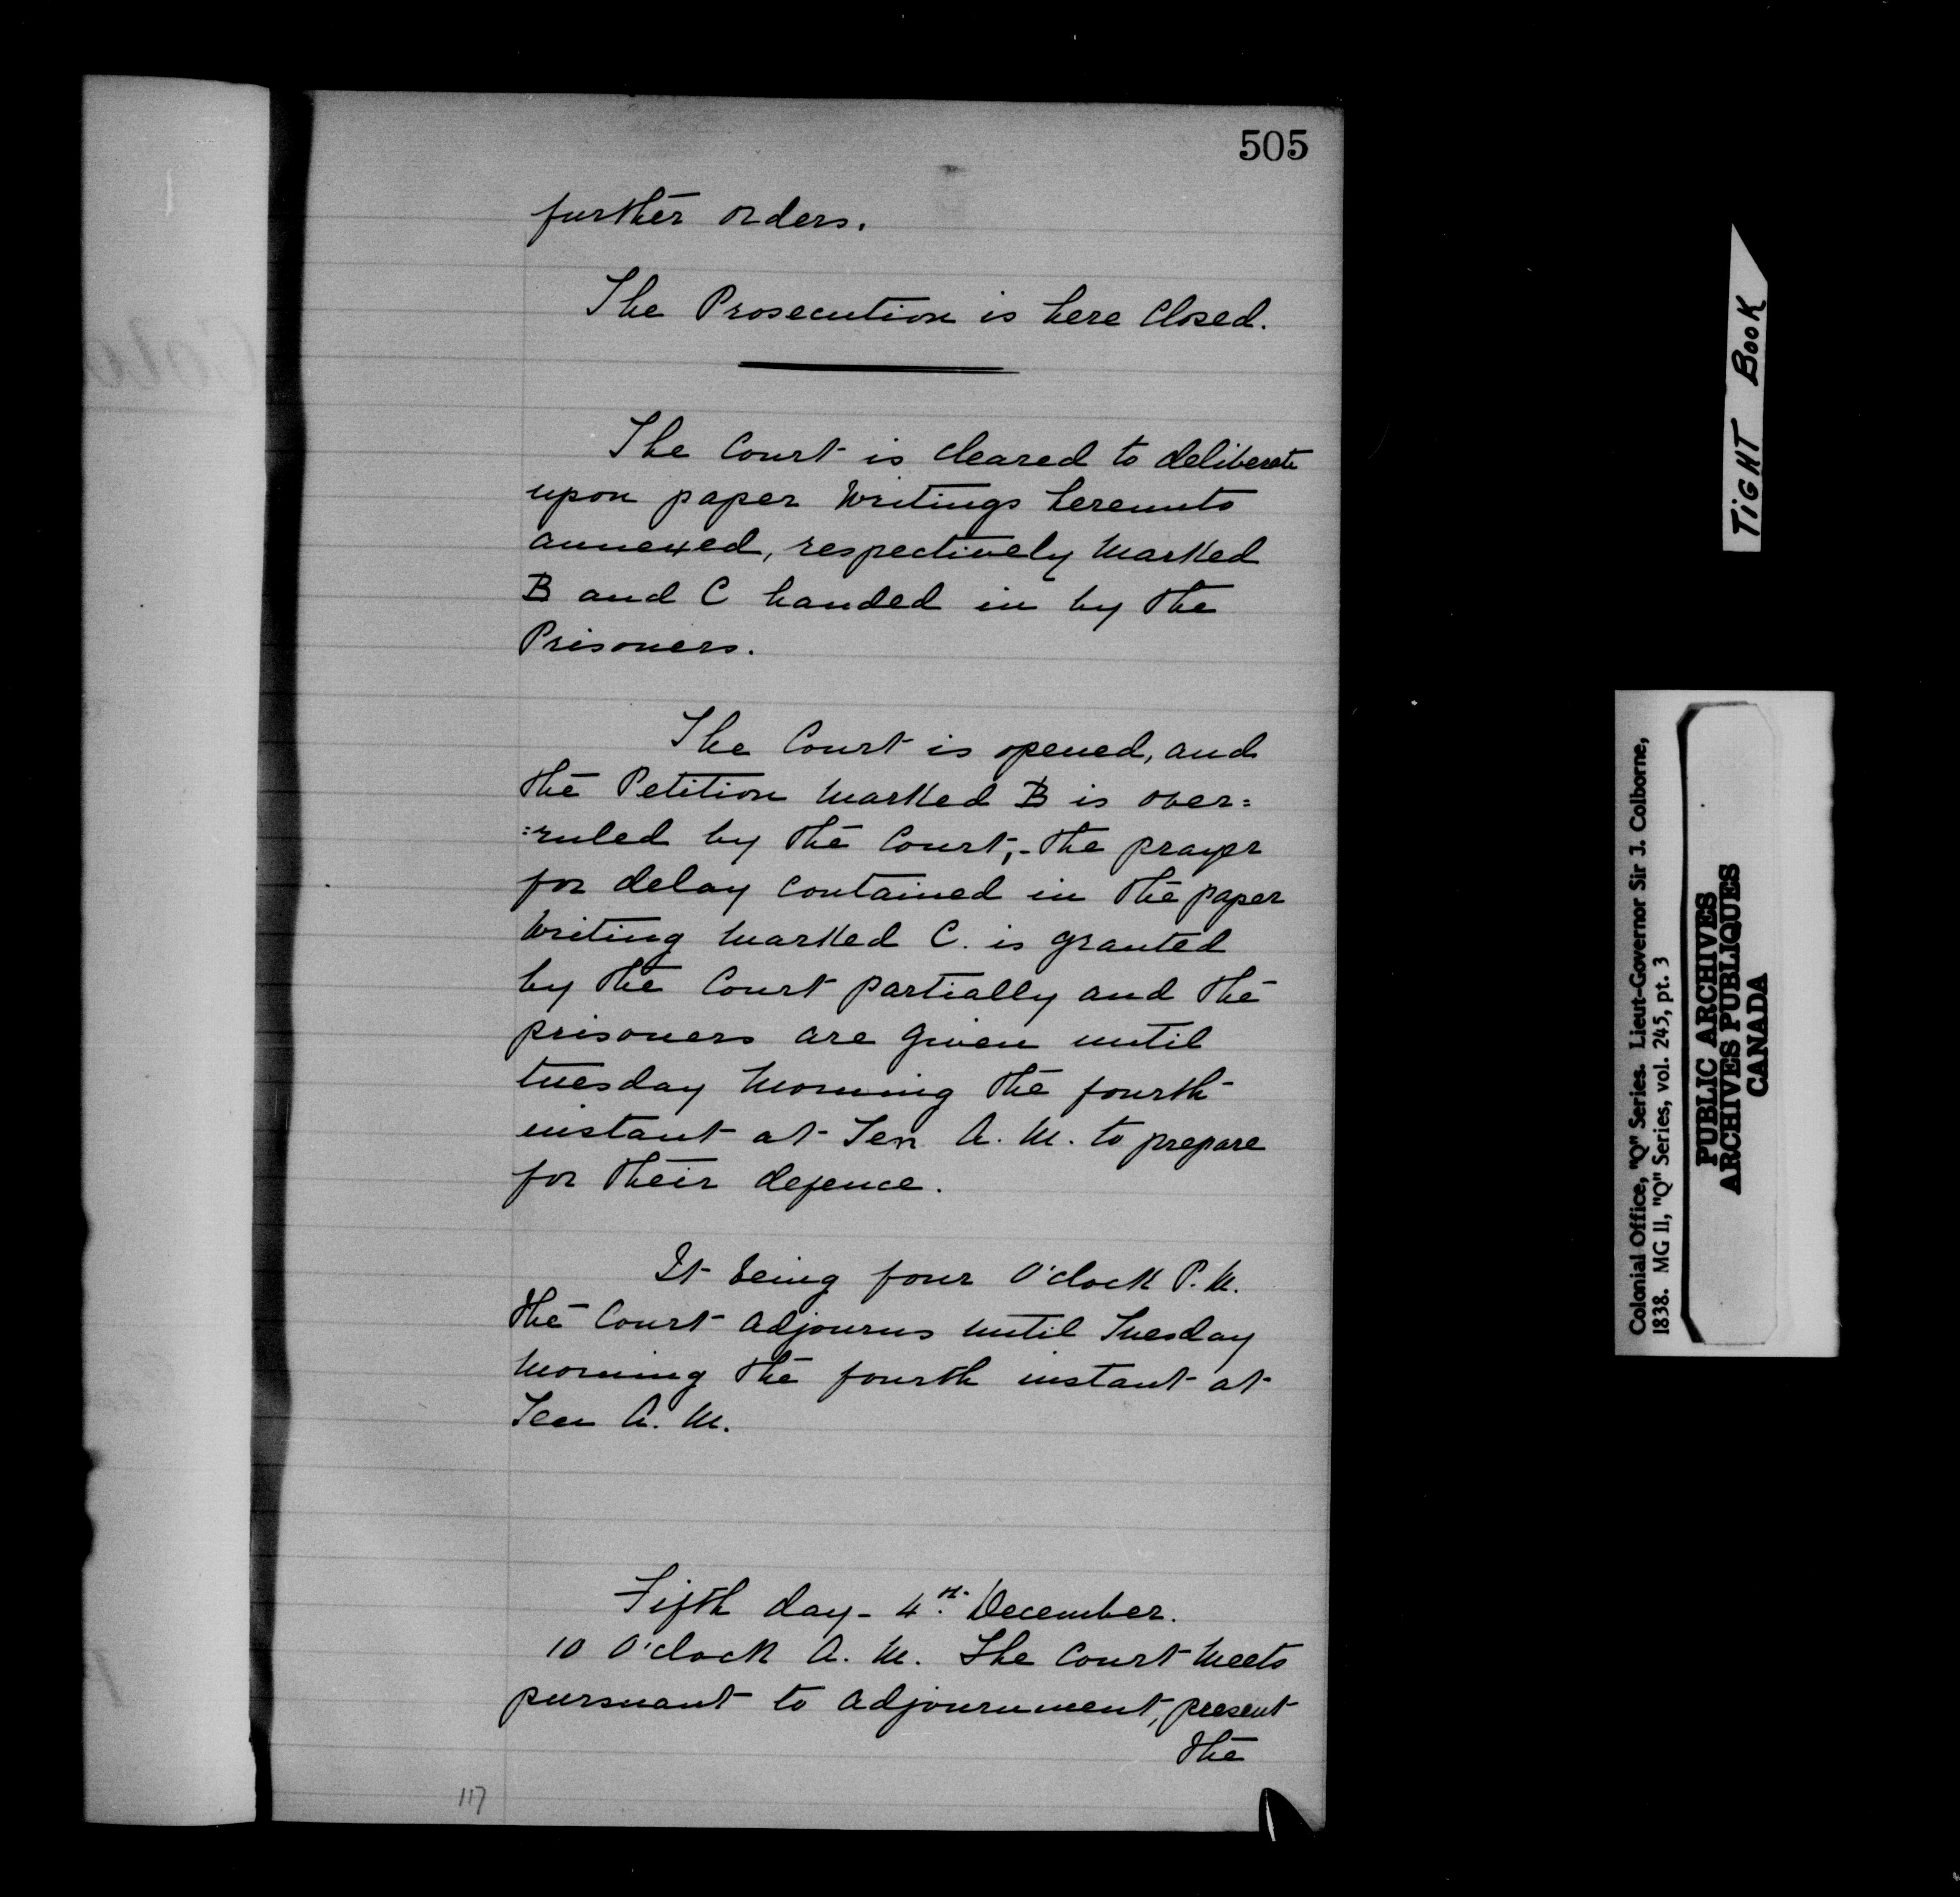 505
further orders.
The Prosecution is here Closed.
The Court is cleared to deliberate
upon paper Writings hereunto
annexed, respectively Marked
B and C handed in by the
Prisoners.
The Court is opened, and
the Petition Marked B is over=
=ruled by the Court,- the prayer
for delay Contained in the paper
Writing Marked C. is granted
by the Court partially and the
prisoners are given until
tuesday Morning the fourth
instant at Ten A. M. to prepare
for their defence.
It being four O'clock P. M.
the Court adjourns until Tuesday
Morning the fourth instant at
Ten A. M.
Fifth day - 4th December.
10 O'clock A. M. The Court Meets
pursuant to adjournment, present
the
117
TiGHT BooK
Colonial Office, "Q" Series. Lieut-Governor Sir J. Colborne,
1838. MG 11, "Q" Series, vol. 245, pt. 3
PUBLIC ARCHIVES
ARCHIVES PUBLIQUES
CANADA